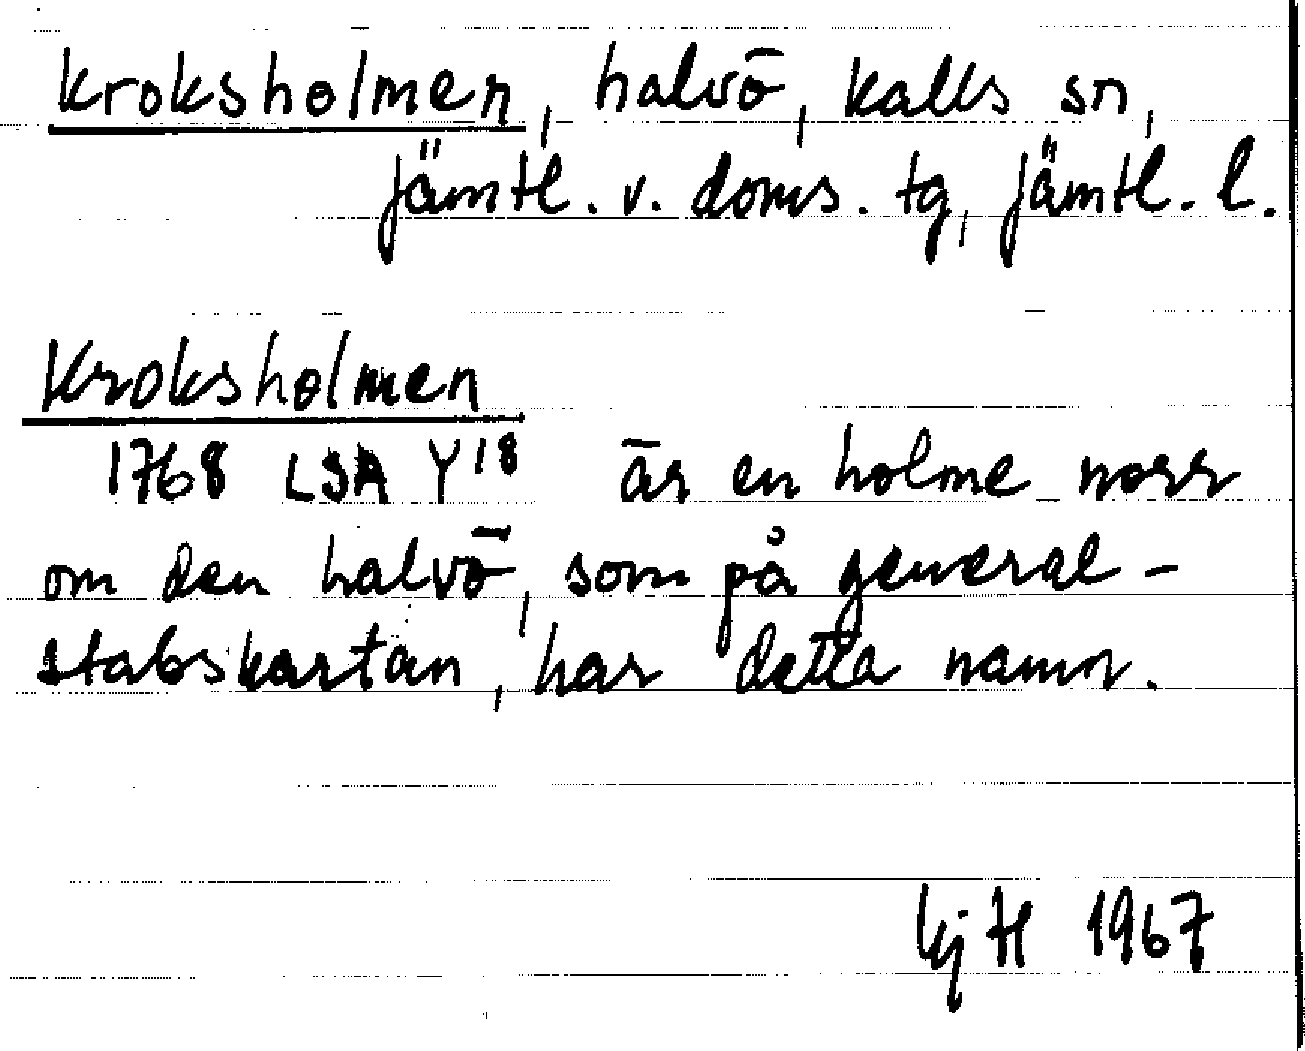 Kroksholmen, halvö, Kalls sn,
Jämtl. v. doms. tg, Jämtl. l.
Kroksholmen
1768 LSA Y18 är en holme norr
om den halvö, som på general-
stabskartan, har detta namn.
KjH 1967